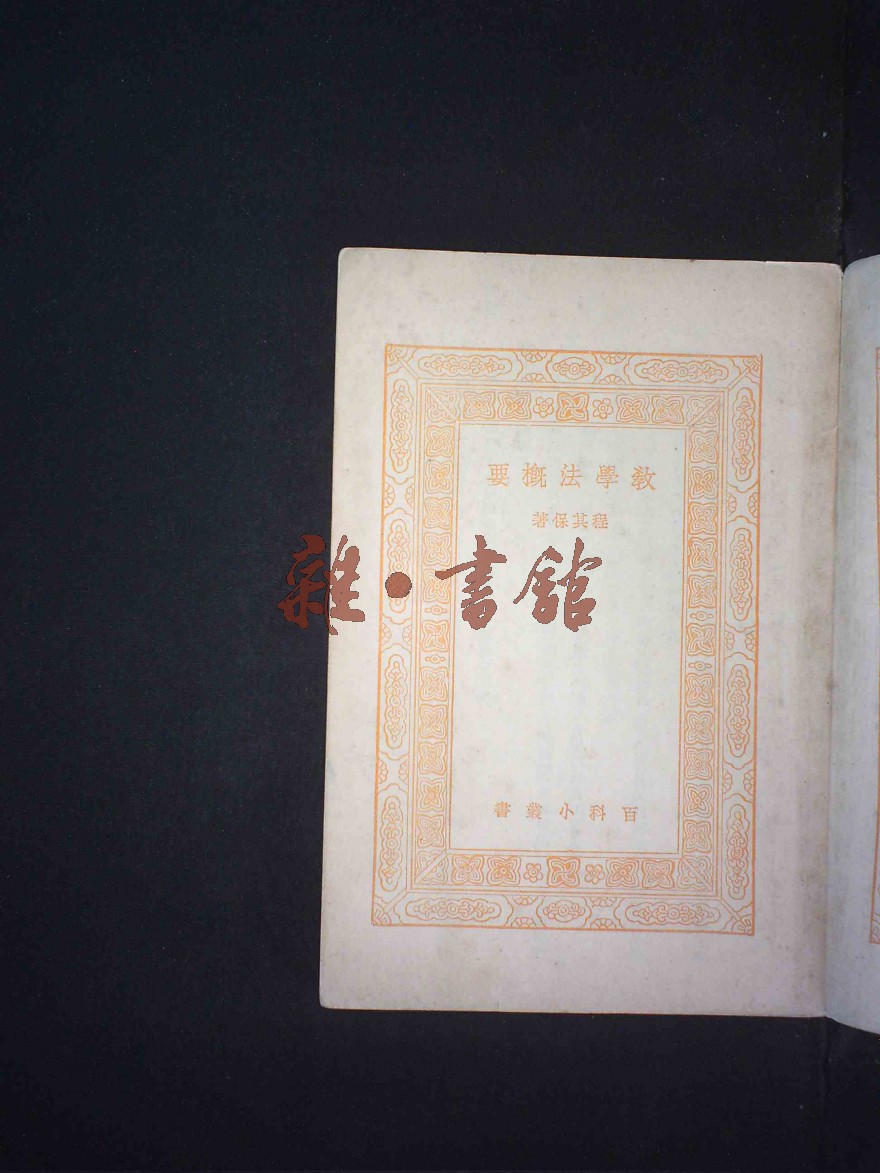 教學法概要
程其保著
雜·書館
百科小叢書